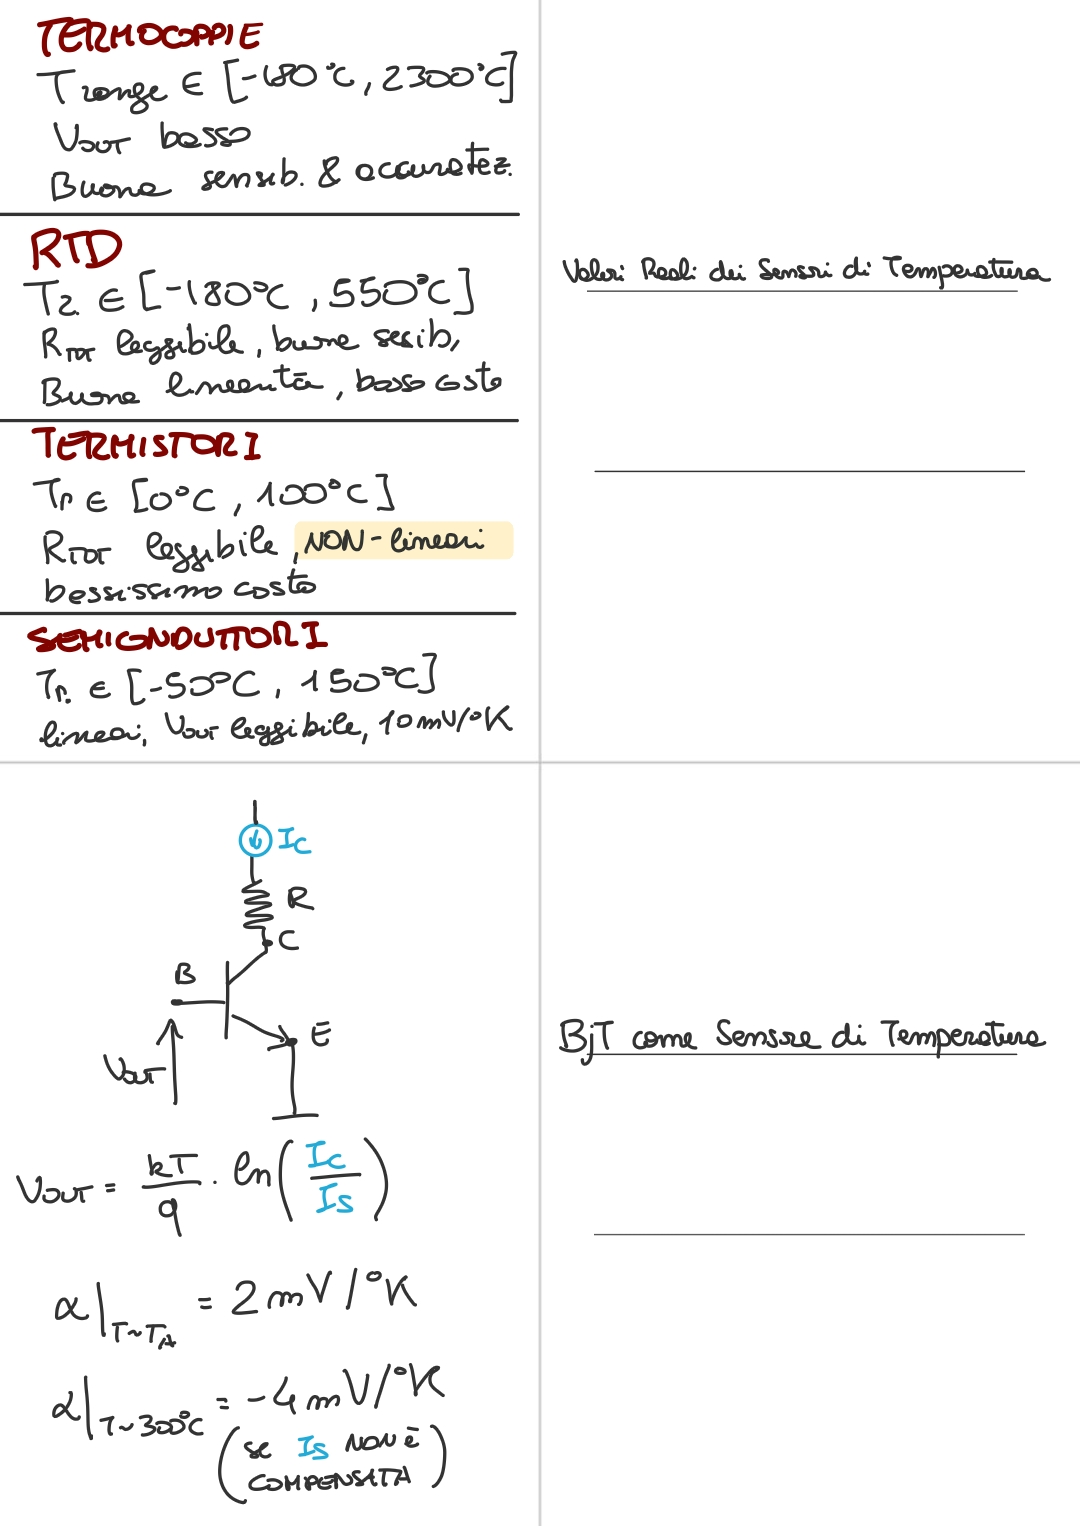 TERMOCOPPIE
T range ∈ [-180°C, 2300°C]
VOUT basso
Buona sensib. & accuratez.
RTD
Tr. ∈ [-180°C, 550°C]
RTOT leggibile, buona sesib,
Buona linearità, basso costo
TERMISTORI
Tr ∈ [0°C, 100°C]
RTOT leggibile, NON-lineari
bassissimo costo
SEMICONDUTTORI
Tr. ∈ [-50°C, 150°C]
lineari, VOUT leggibile, 10mV/°K
Valori Reali dei Sensori di Temperatura
IC
R
C
B
E
VOUT
VOUT = kT/q · ln(IC/IS)
α|T~TA = 2mV/°K
α|T~300°C = -4mV/°K
(se IS NON È
COMPENSATA)
BjT come Sensore di Temperatura